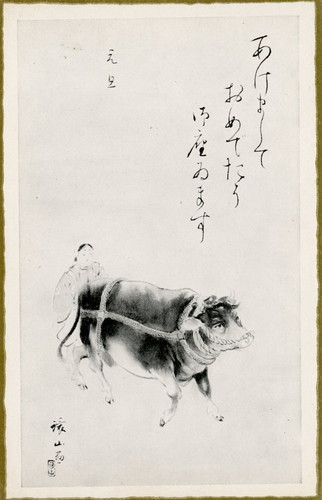 あけまして
おめでたう
御座ゐます
元旦